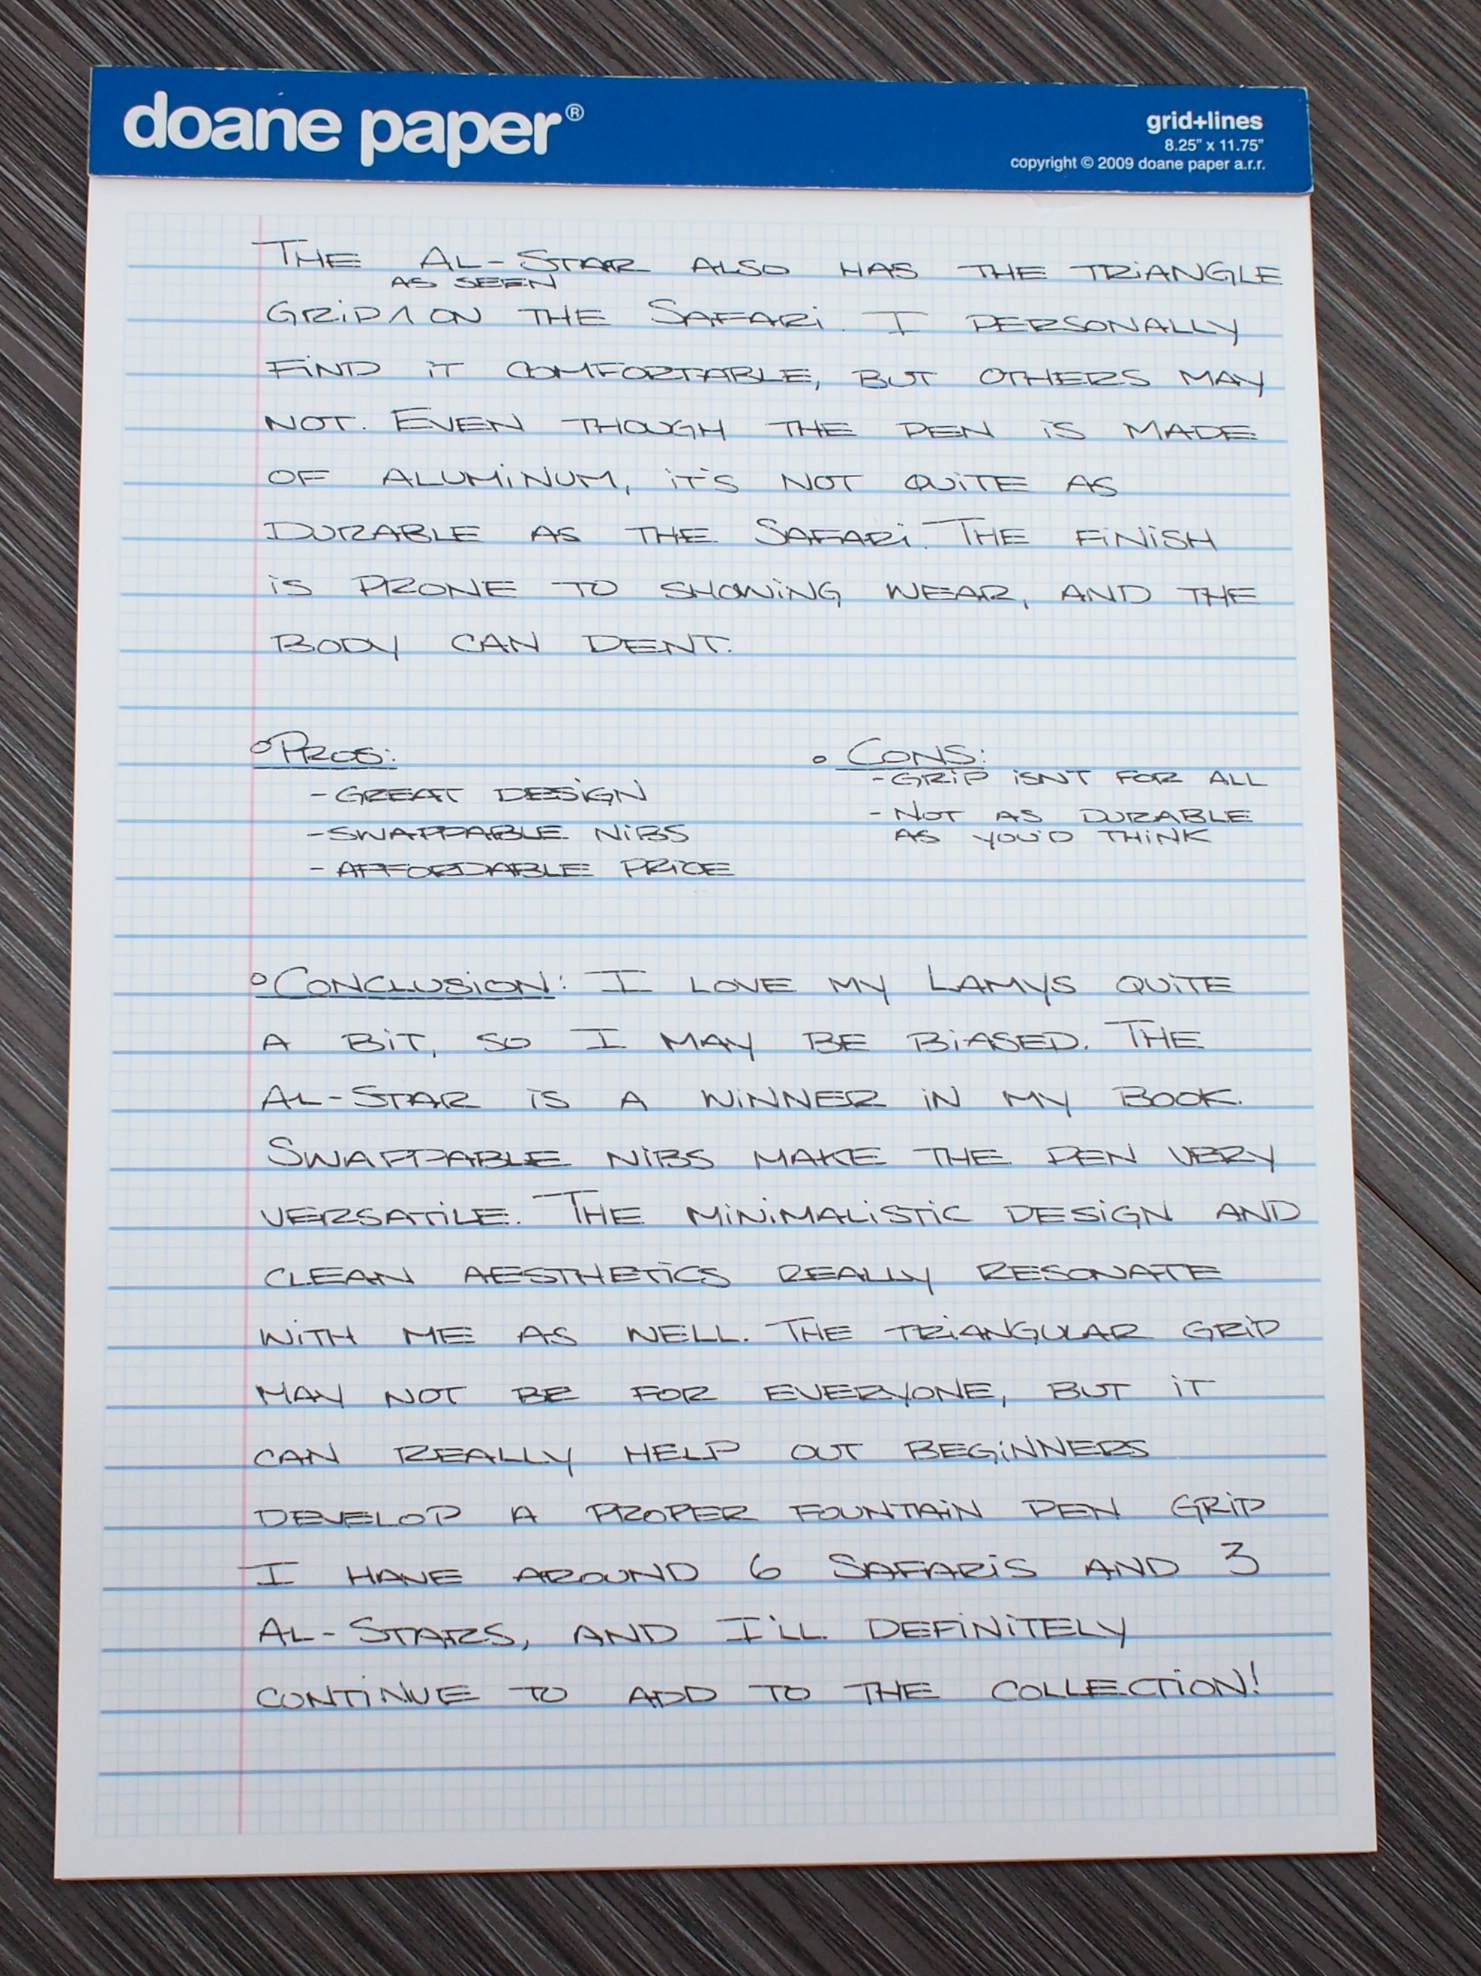 doane paper®
grid+lines
8.25" x 11.75"
copyright © 2009 doane paper a.r.r.
THE AL-STAR ALSO HAS THE TRIANGLE
AS SEEN
GRIP ^ ON THE SAFARI. I PERSONALLY
FIND IT COMFORTABLE, BUT OTHERS MAY
NOT. EVEN THOUGH THE PEN IS MADE
OF ALUMINUM, IT'S NOT QUITE AS
DURABLE AS THE SAFARI. THE FINISH
IS PRONE TO SHOWING WEAR, AND THE
BODY CAN DENT.
PROS:
- GREAT DESIGN
- SWAPPABLE NIBS
- AFFORDABLE PRICE
CONS:
- GRIP ISN'T FOR ALL
- NOT AS DURABLE
AS YOU'D THINK
CONCLUSION: I LOVE MY LAMYS QUITE
A BIT, SO I MAY BE BIASED. THE
AL-STAR IS A WINNER IN MY BOOK.
SWAPPABLE NIBS MAKE THE PEN VERY
VERSATILE. THE MINIMALISTIC DESIGN AND
CLEAN AESTHETICS REALLY RESONATE
WITH ME AS WELL. THE TRIANGULAR GRIP
MAY NOT BE FOR EVERYONE, BUT IT
CAN REALLY HELP OUT BEGINNERS
DEVELOP A PROPER FOUNTAIN PEN GRIP
I HAVE AROUND 6 SAFARIS AND 3
AL-STARS, AND I'LL DEFINITELY
CONTINUE TO ADD TO THE COLLECTION!